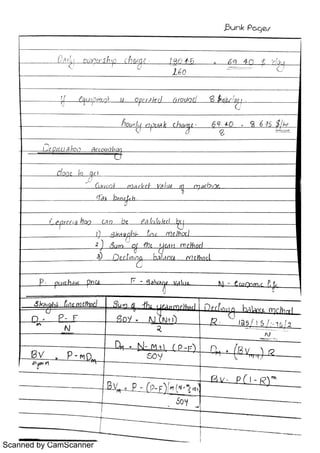 Bunk Pages
Daily ownership charge 18045 = 69.40 $/day
260
If Equipment is operated around 8 hours/day
hourly ownership charge. 69.40 = 8.675 $/hr
8
Depreciation Accounting
done to get
Current market value of machine
Tax benefits
Depreciation can be calculated by
1) Straight line method
2) Sum of the years method
3) Declining balance method
P. purchase price F - Salvage value N - Economic life
Straight line method Sum of the years method Declining balance method
Dm = P-F SOY = N(N+1) R = 1.25/1.5/1.75/2
N 2 N
Dm = N-m+1 (P-F) Dm = (BVm-1) R
SOY
BVm = P-mDm
BV = P(1-R)^m
BVm = P - (P-F)
SOY
Scanned by CamScanner